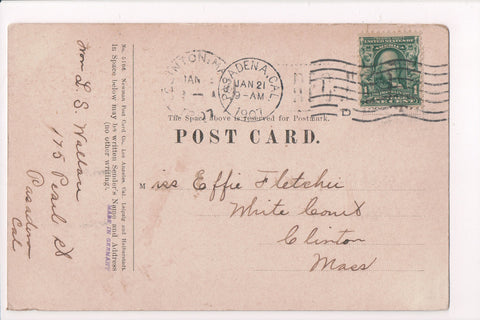 CLINTON, MA
JAN
1907
PASADENA, CAL.
JAN 21
9-AM
1907
The Space above is reserved for Postmark.
POST CARD.
Miss Effie Fletcher
White Court
Clinton
Mass
No. 5166 Newman Post Card Co., Los Angeles, Cal. Leipzig and
In Space below may be written Sender's Name and Address
(no other writing).
MADE IN GERMANY
From L. S. Wallace
175 Pearl St
Pasadena
Cal